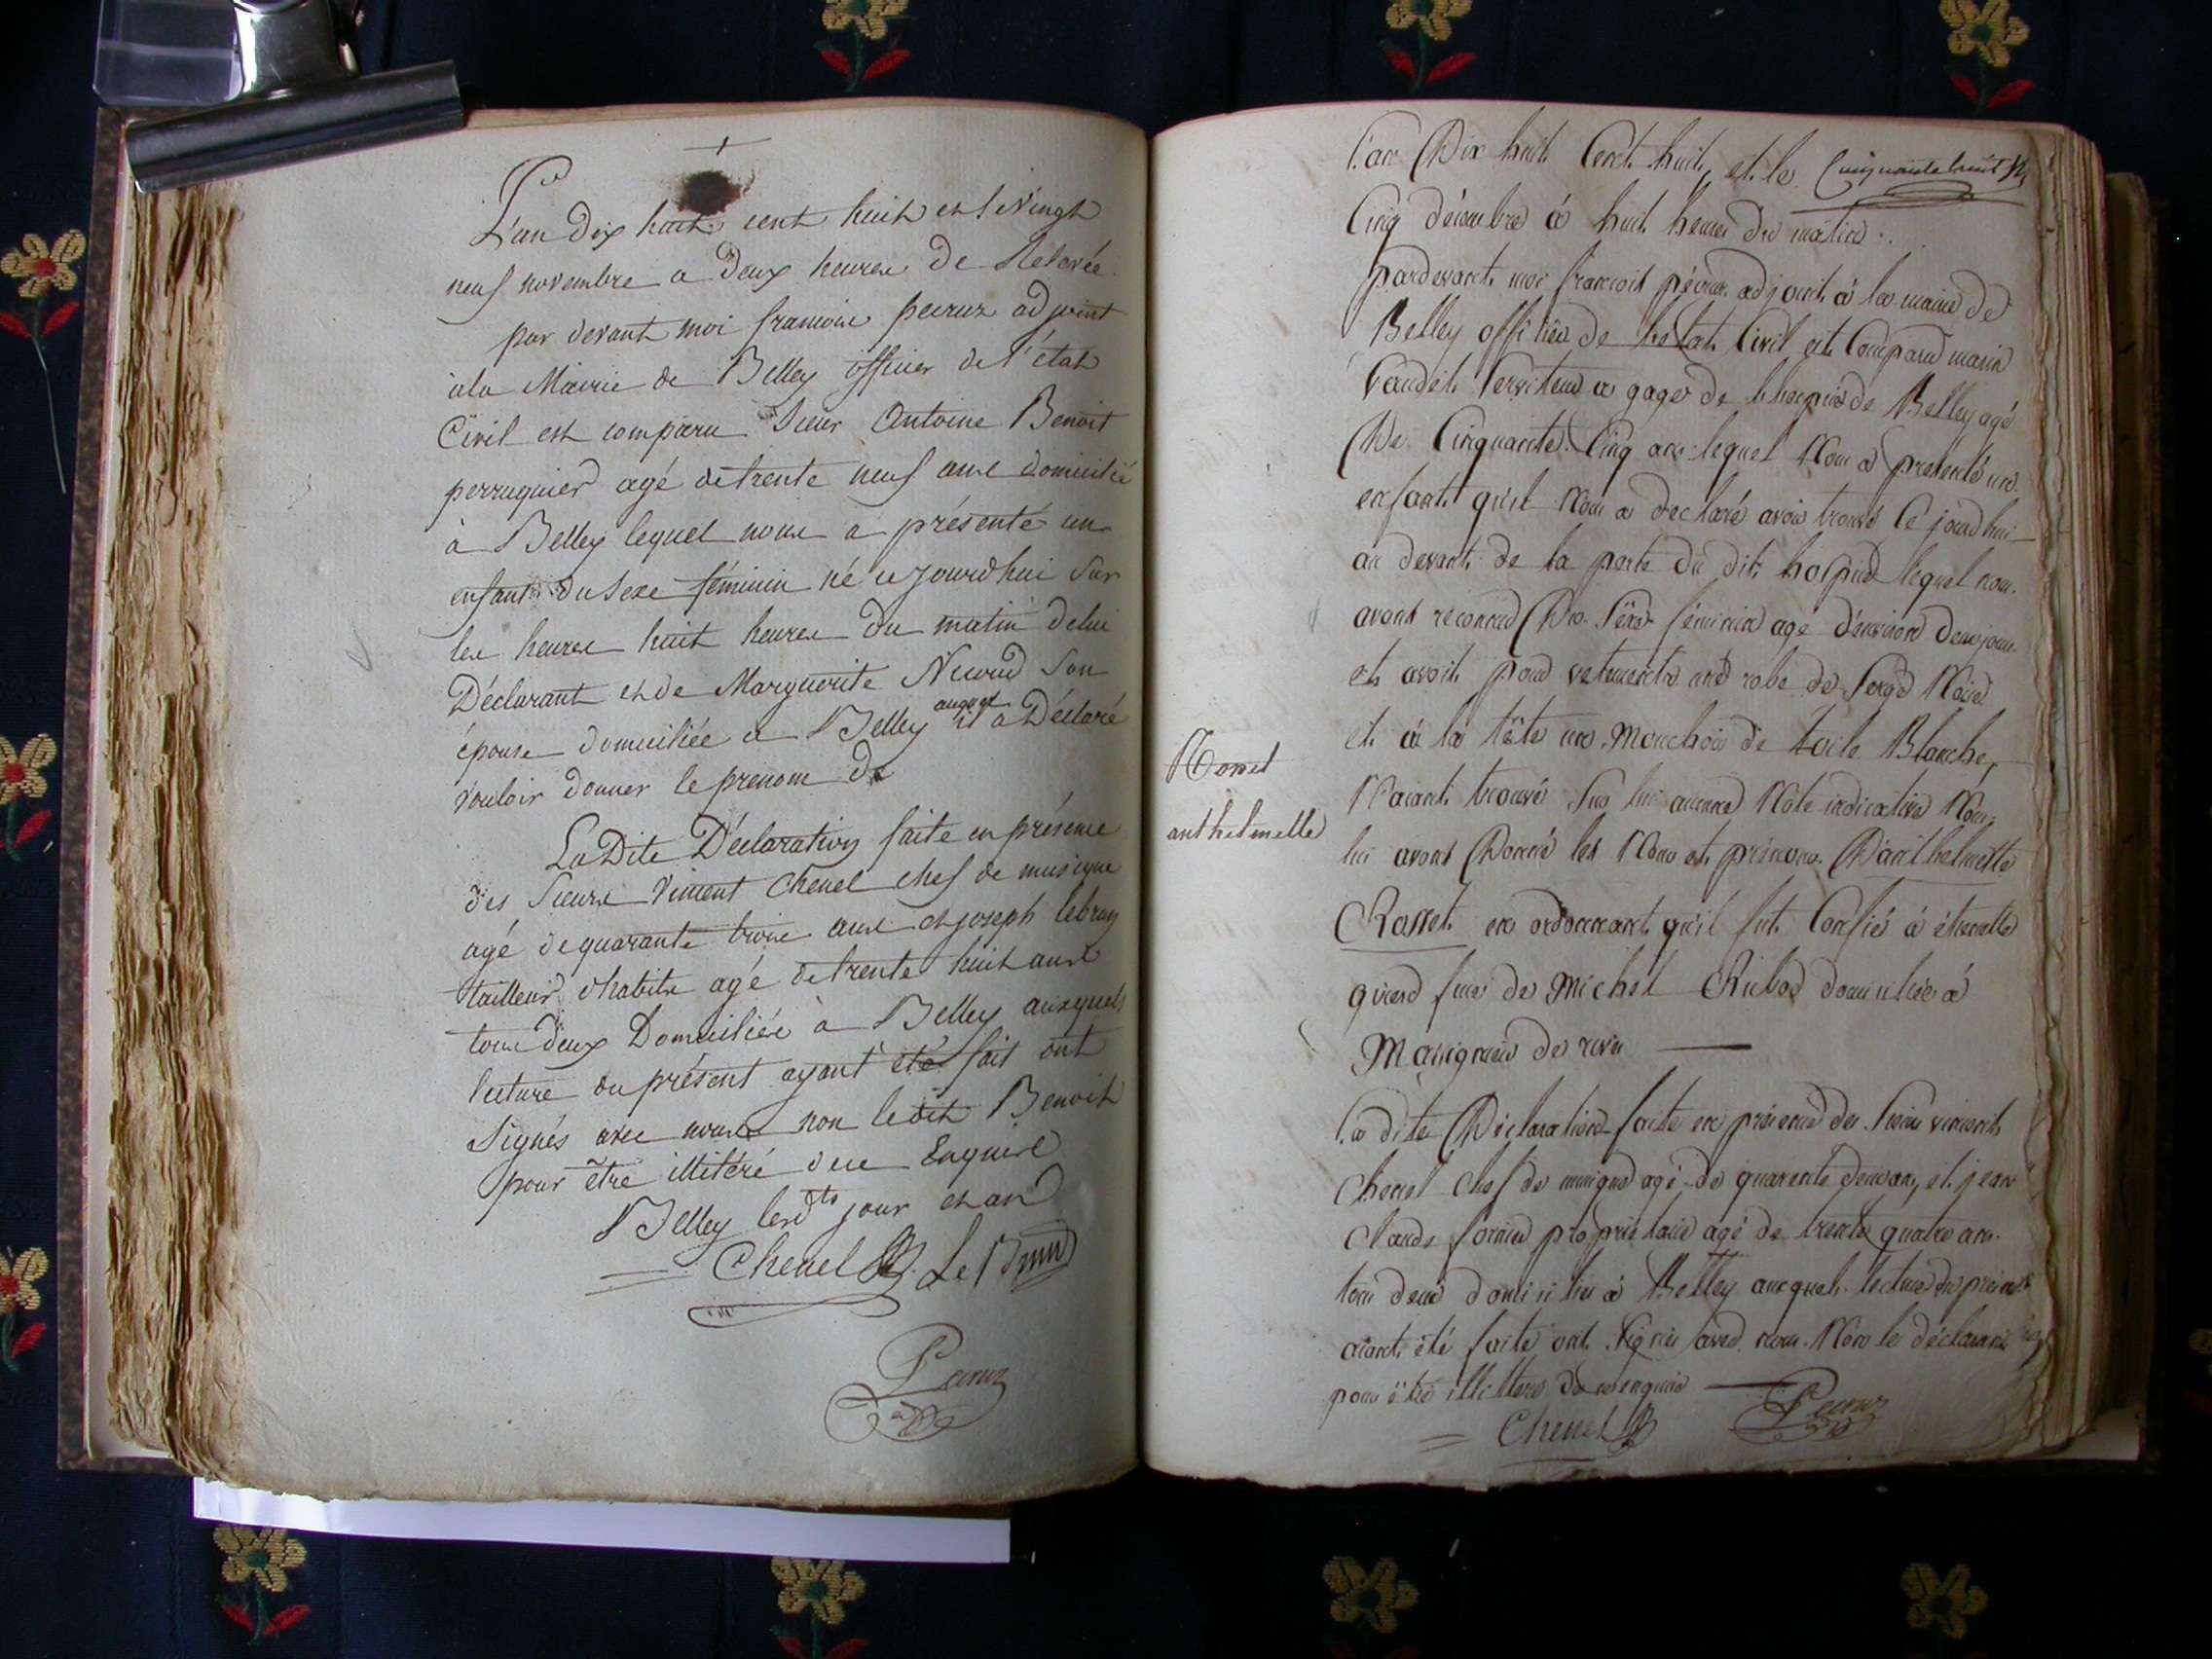 L'an dix huit cent huit et le vingt
neuf novembre a deux heures de Relevée
par devant moi françois peiruz adjoint
ala Mairie de Belley officier de l'état
Civil est comparu Sieur Antoine Benoit
perruquier agé de trente neuf ans domicilié
à Belley lequel nous a présenté un
enfant du Sexe féminin né cejourdhui Sur
les heures huit heures du matin de lui
Déclarant et de Marguerite Son
épouse domiciliée a Belley auquel il a Déclaré
vouloir donner le prenom de
La Dite Déclaration faite en présence
des Sieurs Vincent Chenel chef de musique
agé de quarante trois ans et joseph lebrun
tailleur d'habits agé de trente huit ans
tous deux Domiciliés à Belley auxquels
lecture du présent ayant été fait ont
Signés avec nous non le dit Benoit
pour être illitéré de ce Enquis
Belley lesdts jour et an
Chenel Le Brun
Peiruz
L'an Dix huit Cent huit, et le Cinquante huit
Cinq décembre à huit heures du matin
pardevant moi françois péiruz adjoint à la mairie de
Belley officier de l'etat Civil est Comparu marin
serviteur a gages de l'hospice de Belley agé
De Cinquante Cinq ans lequel Nous a presenté un
enfant qu'il Nous a declaré avoir trouvé Ce jourd'hui
au devant de la porte du dit hospice lequel nous
avons reconnu Du Sexe féminin agé d'environ deux jours
et avoit pour vetements une robe de Serge Noire
et à la tête un Mouchoir de toile Blanche,
N'aiant trouvé Sur lui aucune Note indicative Nous
lui avons Donné les Nom et prénoms D'anthelmette
Rosset en ordonnant qu'il fut Confié à étiennette
de Michel Ribod domiciliée à
Massignieu de rives
Rosset
anthelmette
La dite Déclaration faite en présence des Sieurs vincent
Chenel Chef de musique agé de quarente deux ans, et jean
Claude propriétaire agé de trente quatre ans
tous deux domiciliés à Belley auxquels lecture du présent
aiant été faite ont Signés avec nous Non le déclarant
pour être illittere de ce enquis
Chenel Peiruz